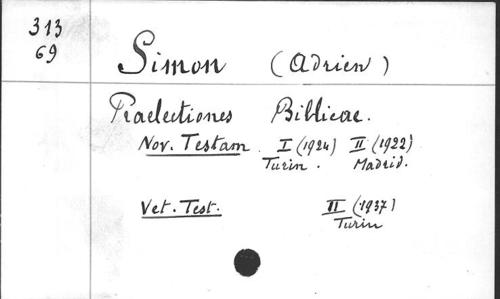 313
69
Simon (Adrien)
Praelectiones Biblicae.
Nov. Testam. I (1924) II (1922)
Turin. Madrid.
Vet. Test. II (1937)
Turin